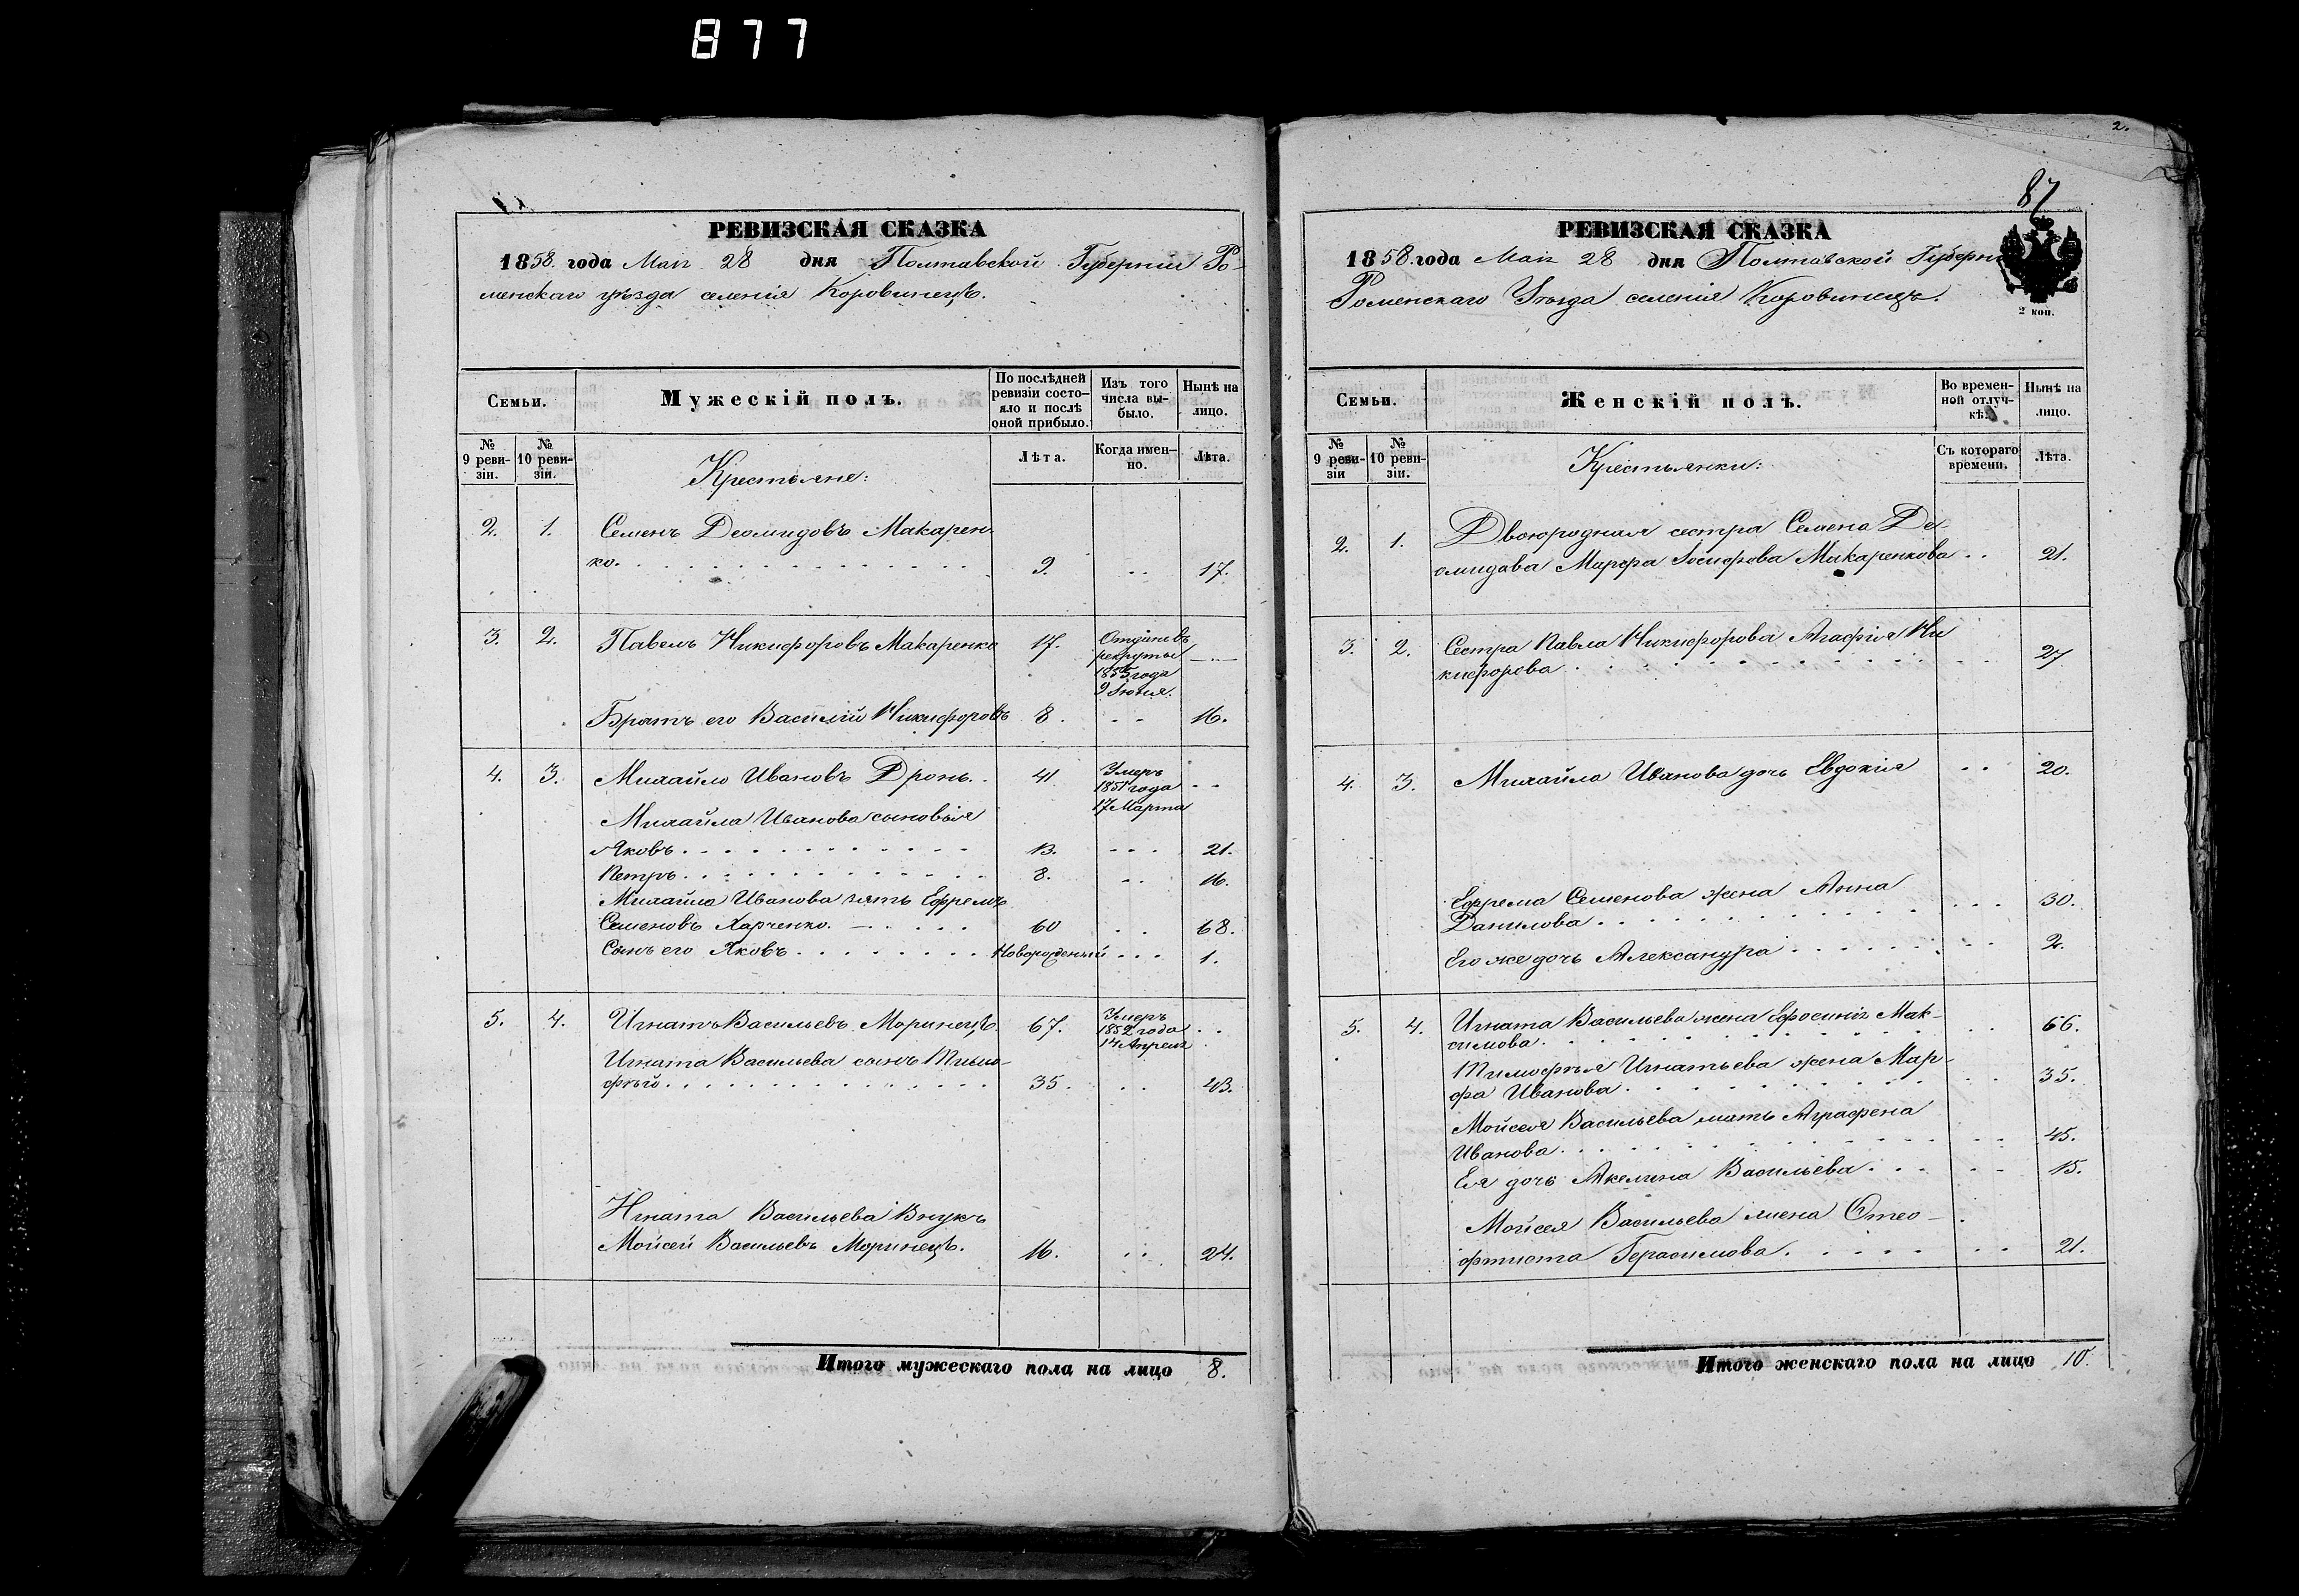 877
РЕВИЗСКАЯ СКАЗКА
1858. года Мая 28 дня Полтавской Губерніи Ро-
менскаго уѣзда селенія Коровинецъ.
Семьи.
Мужескій полъ.
По послѣдней ревизіи состо-
яло и послѣ оной прибыло.
Изъ того числа вы-
было.
Нынѣ на лицо.
№ 9 реви-
зіи.
№ 10 реви-
зіи.
Крестьяне:
Лѣта.
Когда имен-
но.
Лѣта.
2. 1. Семенъ Деомидовъ Макарен-
ко. 9. 17.
3. 2. Павелъ Никифоровъ Макаренко 17. Отданъ въ
рекруты
1855 года
9 Іюня.
Братъ его Василій Никифоровъ 8. 16.
4. 3. Михайло Ивановъ Дронь. 41 Умеръ
1851 года
17 Марта
Михайла Иванова сыновья
Яковъ 13. 21.
Петръ 8. 16.
Михайла Иванова зять Ефремъ
Семеновъ Харченко. 60 68.
Сынъ его Яковъ Новорожденный 1.
5. 4. Игнатъ Васильевъ Моринецъ. 67. Умеръ
1852 года
14 Апреля
Игната Васильева сынъ Тимо-
фѣй 35. 43.
Игната Васильева Внукъ
Мойсей Васильевъ Моринецъ. 16. 24.
Итого мужескаго пола на лицо 8.
2.
87
РЕВИЗСКАЯ СКАЗКА
1858. года Мая 28 дня Полтавской Губерніи
Роменскаго Уѣзда селенія Коровинецъ.
2 коп.
Семьи.
Женскій полъ.
Во времен-
ной отлуч-
кѣ.
Нынѣ на лицо.
№ 9 реви-
зіи
№ 10 реви-
зіи.
Крестьянки:
Съ котораго времени.
Лѣта.
2. 1. Двоюродная сестра Семена Де-
омидава Марфа Іосифова Макаренкова 21.
3. 2. Сестра Павла Никифорова Агафія Ни
кифорова 27
4. 3. Михайла Иванова дочь Евдокія 20.
Ефрема Семенова жена Анна
Данилова 30.
Его же дочь Александра 2.
5. 4. Игната Васильева жена Ефросинія Мак-
симова. 66.
Тимофѣя Игнатьева жена Мар-
фа Иванова 35.
Мойсея Васильева мать Аграфена
Иванова. 45.
Ея дочь Акелина Васильева. 15.
Мойсея Васильева жена Өтео-
фтиста Герасимова. 21.
Итого женскаго пола на лицо 10.